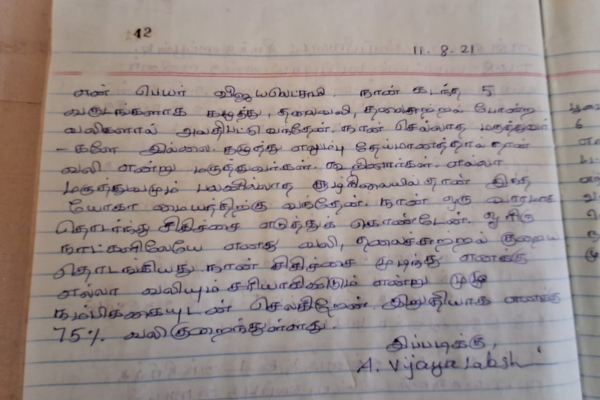 42
11.8.21
என் பெயர் விஜயலெட்சுமி. நான் கடந்த 5
வருடங்களாக கழுத்து, தலைவலி, தலைசுற்றல் போன்ற
வலிகளால் அவதிபட்டு வந்தேன். நான் செல்லாத மருத்துவர்
- களே இல்லை. கழுத்து எலும்பு தேய்மானத்தால் தான்
வலி என்று மருத்துவர்கள் கூறினார்கள். எல்லா
மருத்துவமும் பலனில்லாத சூழ்நிலையில் தான் இந்த
யோகா மையத்திற்கு வந்தேன். நான் ஒரு வாரமாக
தொடர்ந்து சிகிச்சை எடுத்துக் கொண்டேன்.
நாட்களிலேயே எனது வலி, தலைச்சுற்றல் குறைய
தொடங்கியது. நான் சிகிச்சை முடிந்து எனக்கு
எல்லா வலியும் சரியாகிவிடும் என்று முழு
நம்பிக்கையுடன் செல்கிறேன். இறுதியாக எனக்கு
75% வலி குறைந்துள்ளது.
இப்படிக்கு,
A. Vijaya Lakshi